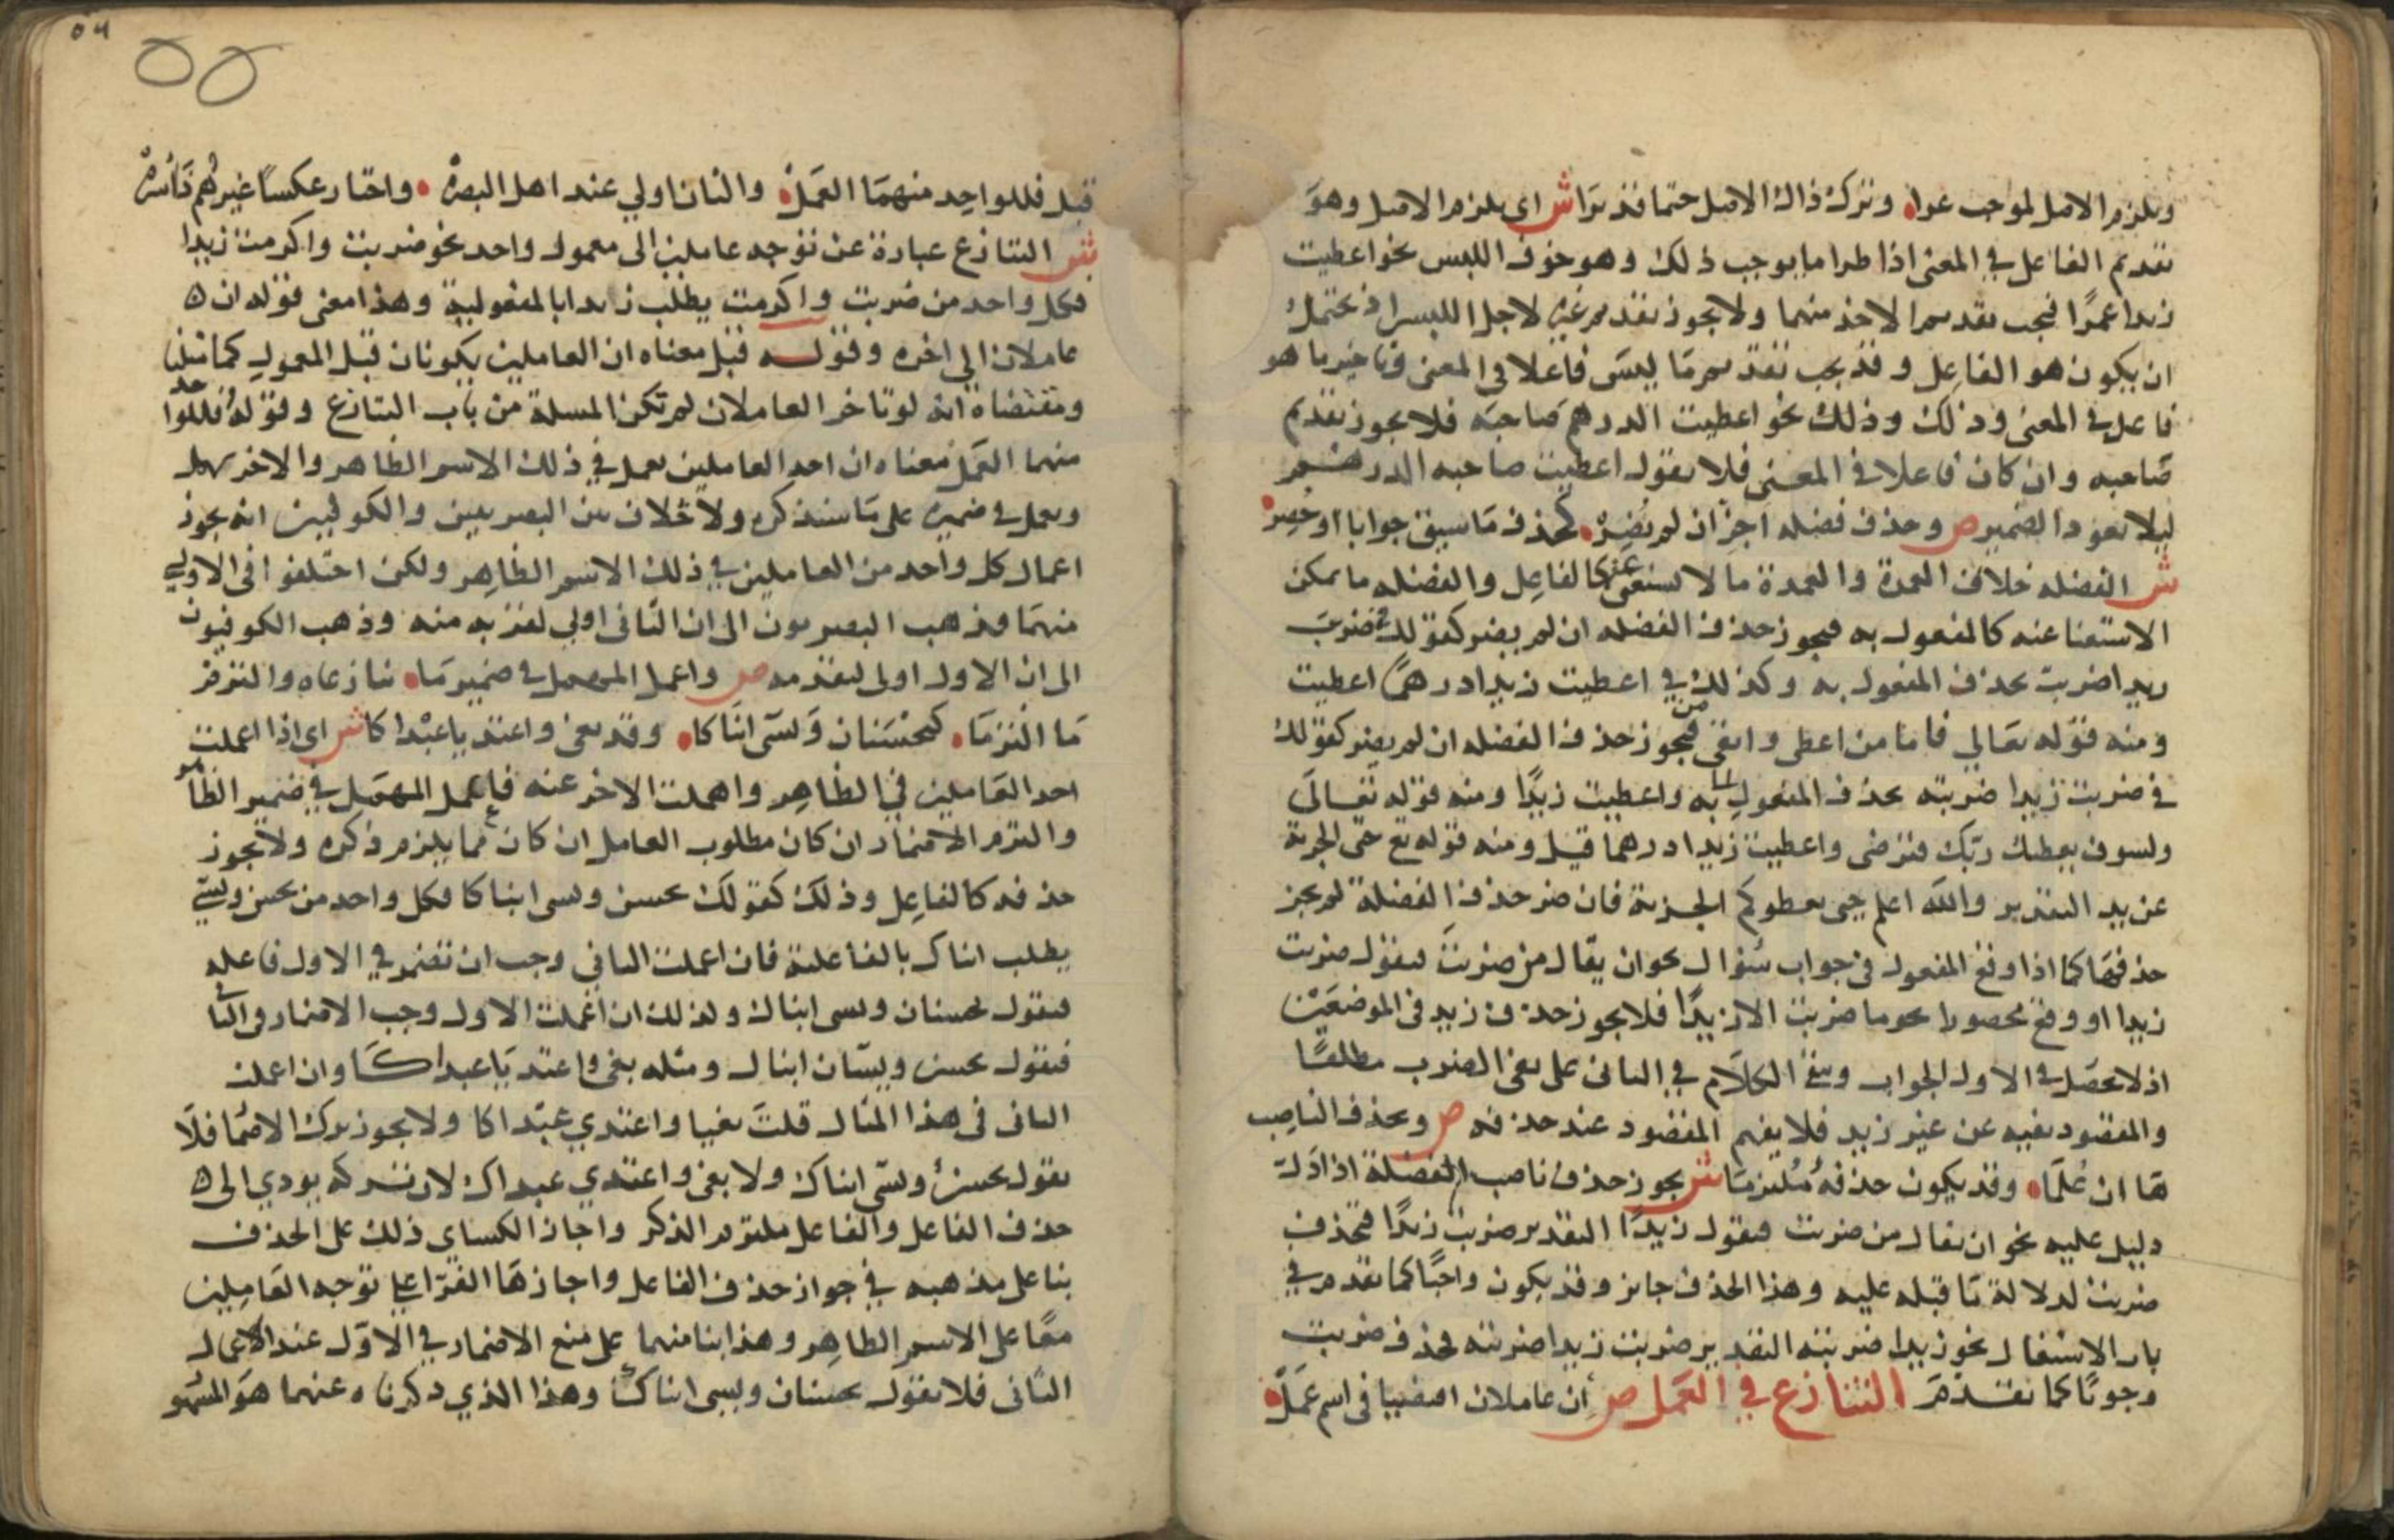 ويلزم الاصل لموجب عرا وترك ذاك الاصل حتما قد يرا ش اي يلزم الاصل وهو
تقديم الفاعل في المعنى اذا طرا ما يوجب ذلك وهو خوف اللبس نحو اعطيت
زيدا عمرًا فيجب تقديم الاخذ منهما ولا يجوز تقديم غيره لاجل اللبس اذ يحتمل
ان يكون هو الفاعل وقد يجب تقديم ما ليس فاعلا في المعنى وتاخير ما هو
فاعل في المعنى وذلك وذلك نحو اعطيت الدرهم صاحبه فلا يجوز تقديم
صاحبه وان كان فاعلا في المعنى فلا يقول اعطيت صاحبه الدرهم
ليلا يعود الضمير ص وحذف فضله اجز ان لم يضر كحذف ما سيق جوابا او حصر
ش الفضله خلاف العمدة والعمدة ما لا يستغنى عنه كالفاعل والفضله ما يمكن
الاستغنا عنه كالمفعول به فيجوز حذف الفضله ان لم يضر كقولك في ضربت
زيدا ضربت بحذف المفعول به وكذلك في اعطيت زيدا درهمًا اعطيت
ومنه قوله تعالي فاما من اعطى واتقى فيجوز حذف الفضله ان لم يضر كقولك
في ضربت زيدا ضربته بحذف المفعول به واعطيت زيدًا ومنه قوله تعالى
ولسوف يعطيك ربك فترضى واعطيت زيدا درهما قيل ومنه قوله تع حتى الجزية
عن يد التقدير والله اعلم حتى يعطوكم الجزية فان ضر حذف الفضلة لم يجز
حذفها كما اذا وقع المفعول في جواب سؤال نحو ان يقال من ضربت فيقول ضربت
زيدا او وقع محصورا نحو ما ضربت الا زيدًا فلا يجوز حذف زيد في الموضعين
اذ لا يحصل في الاول الجواب ويبقى الكلام في الثاني على نفي الضرب مطلقًا
والمقصود نفيه عن غير زيد فلا يفهم المقصود عند حذفه ص ويحذف الناصب
ها ان علما وقد يكون حذفه ملتزما ش يجوز حذف ناصب الفضلة اذا دل
دليل عليه نحو ان يقال من ضربت فيقول زيدًا التقدير ضربت زيدًا فتحذف
ضربت لدلالة ما قبله عليه وهذا الحذف جايز وقد يكون واجبًا كما تقدم في
باب الاشتغال نحو زيدا ضربته التقدير ضربت زيدا ضربته فحذف ضربت
وجوبًا كما تقدم التنازع في العمل ص ان عاملان اقتضيا في اسم عمل
قبل فللواحد منهما العمل والثان اولي عند اهل البصره واختار عكسًا غيرهم ذا اسره
ش التنازع عبارة عن توجه عاملين الى معمول واحد نحو ضربت واكرمت زيدا
فكل واحد من ضربت واكرمت يطلب زيدا بالمفعولية وهذا معنى قوله ان
عاملان الى اخره وقوله قبل معناه ان العاملين يكونان قبل المعمول كما مثلنا
ومقتضاه انه لو تاخر العاملان لم تكن المسلة من باب التنازع وقوله فللواحد
منهما العمل معناه ان احد العاملين يعمل في ذلك الاسم الظاهر والاخر يهمل
ويعمل في ضميره على ما سنذكره ولا خلاف بين البصريين والكوفيين انه يجوز
اعمال كل واحد من العاملين في ذلك الاسم الظاهر ولكن اختلفوا في الاولى
منهما فذهب البصريون الى ان الثاني اولي لقربه منه وذهب الكوفيون
الى ان الاول اولى لتقدمه ص واعمل المهمل في ضمير ما تنازعاه والتزم
ما التزما كيحسنان ويسي ابناكا وقد بغى واعتديا عبداكا ش اي اذا اعملت
احد العاملين في الظاهر واهملت الاخر عنه فاعمل المهمل في ضمير الظاهر
والتزم الاضمار ان كان مطلوب العامل ان كان مما يلزم ذكره ولا يجوز
حذفه كالفاعل وذلك كقولك يحسن ويسي ابناكا فكل واحد من يحسن ويسي
يطلب ابناك بالفاعلية فان اعملت الثاني وجب ان تضمر في الاول فاعله
فيقول يحسنان ويسي ابناك وكذلك ان اعملت الاول وجب الاضمار في الثاني
فيقول يحسن ويسيان ابناك ومثله بغى واعتديا عبداكا وان اعملت
الثاني في هذا المثال قلت بغيا واعتدي عبداكا ولا يجوز ترك الاضمار فلا
يقول يحسن ويسي ابناك ولا بغى واعتدي عبداك لان تركه يودي الى
حذف الفاعل والفاعل ملتزم الذكر واجاز الكساي ذلك على الحذف
بنا على مذهبه في جواز حذف الفاعل واجازها الفرا على توجه العاملين
معًا على الاسم الظاهر وهذا بنا منهما على منع الاضمار في الاول عند اعمال
الثاني فلا يقول يحسنان ويسي ابناك وهذا الذي ذكرناه عنهما هو المشهو